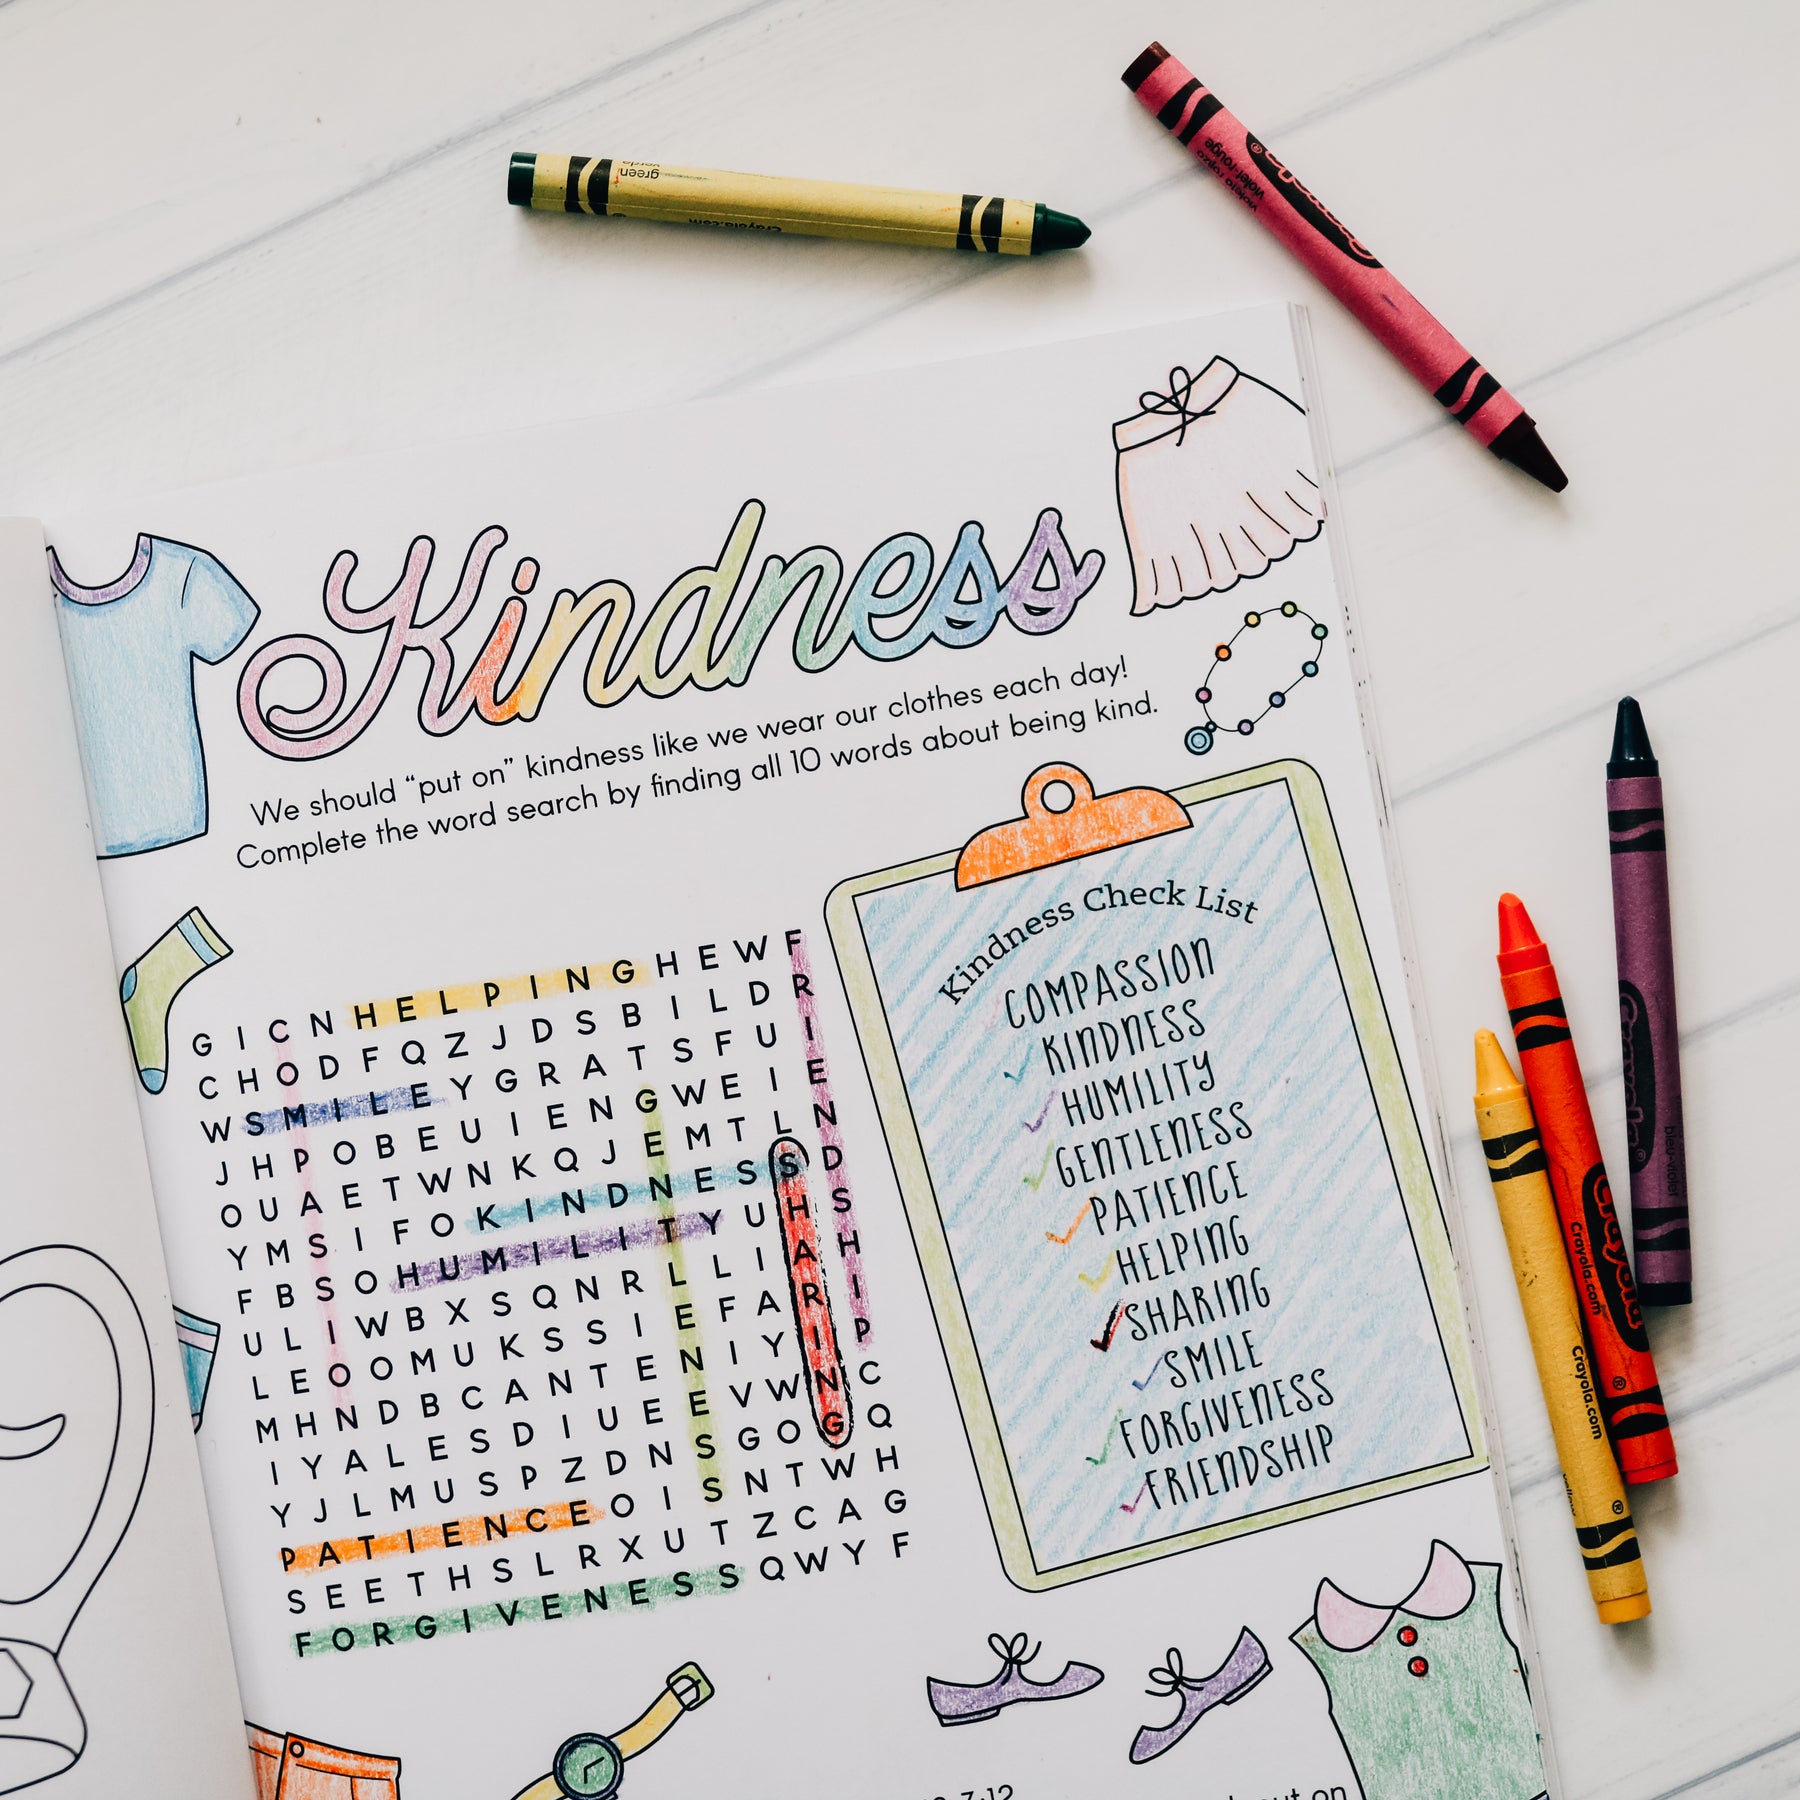 green
verde
Crayola.com
Crayola
violeta rojizo
violet-rouge
Kindness
We should “put on” kindness like we wear our clothes each day!
Complete the word search by finding all 10 words about being kind.
G I C N H E L P I N G H E W F
C H O D F Q Z J D S B I L D R
W S M I L E Y G R A T S F U I
J H P O B E U I E N G W E I E
O U A E T W N K Q J E M T L N
Y M S I F O K I N D N E S S D
F B S O H U M I L I T Y U H S
U L I W B X S Q N R L L I A H
L E O O M U K S S I E F A R I
M H N D B C A N T E N I Y I P
I Y A L E S D I U E E V W N C
Y J L M U S P Z D N S G O G Q
P A T I E N C E O I S N T W H
S E E T H S L R X U T Z C A G
F O R G I V E N E S S Q W Y F
Kindness Check List
COMPASSION
KINDNESS
HUMILITY
GENTLENESS
PATIENCE
HELPING
SHARING
SMILE
FORGIVENESS
FRIENDSHIP
Crayola
bleu-violet
Crayola
Crayola.com
Crayola.com
7:12
out on